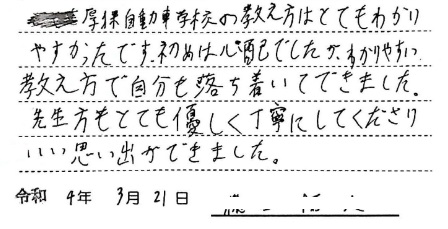 厚保自動車学校の教え方はとてもわかり
やすかったです。初めは心配でしたが、わかりやすい
教え方で自分も落ち着いてできました。
先生方もとても優しく丁寧にしてくださり
いい思い出ができました。
令和 4年 3月 21日